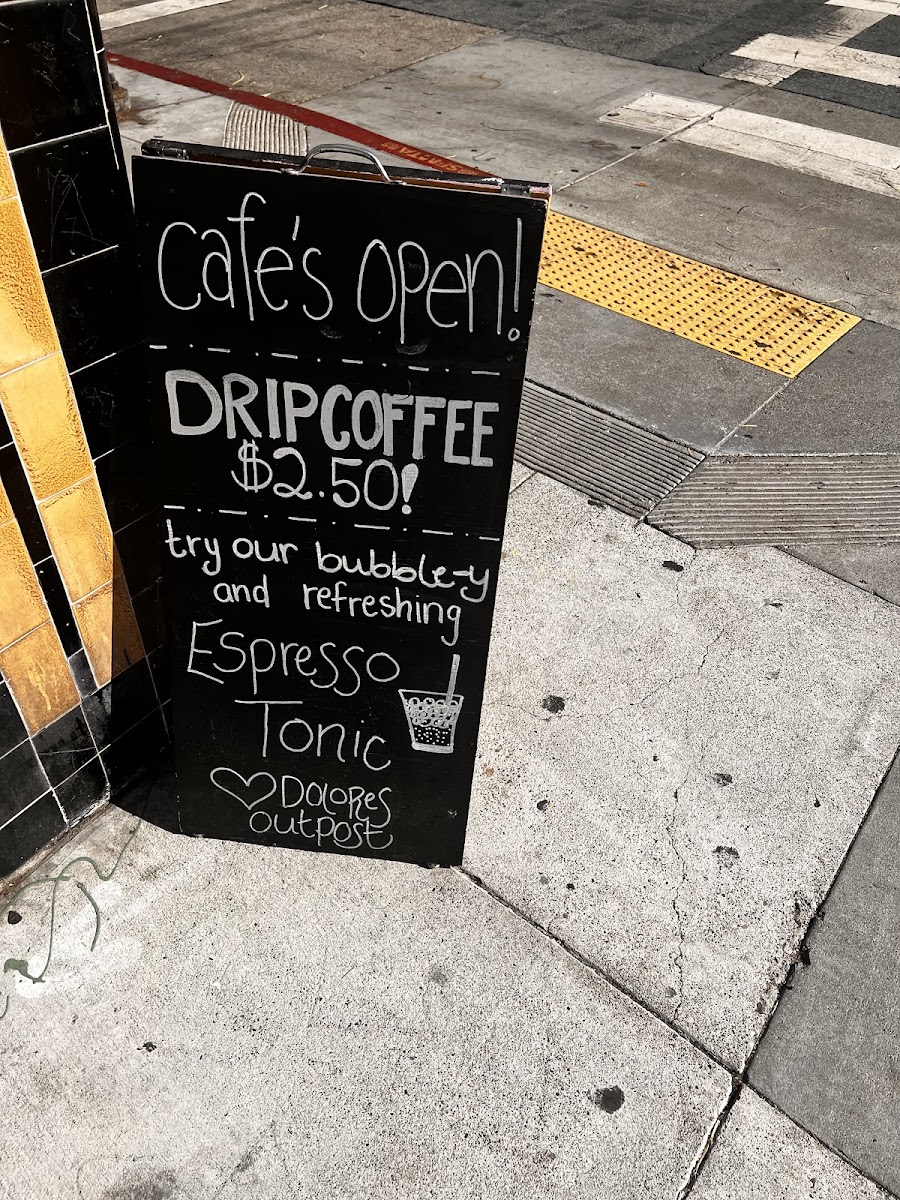 cafe's open!
DRIPCOFFEE
$2.50!
try our bubble-y
and refreshing
Espresso
Tonic
♡ DOLORES
outpost